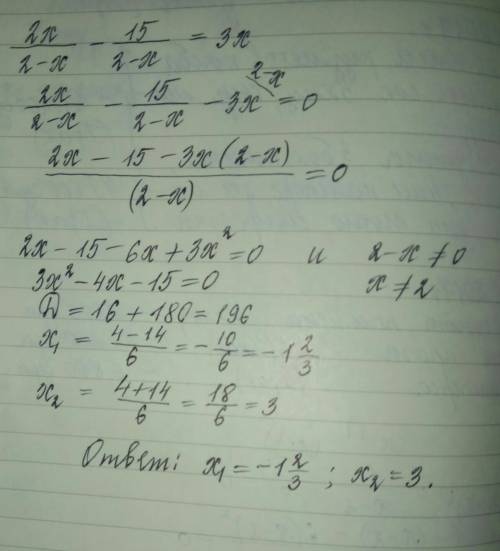 2x/(2-x) - 15/(2-x) = 3x
2x/(2-x) - 15/(2-x) - 3x \2-x = 0
(2x - 15 - 3x(2-x))/(2-x) = 0
2x - 15 - 6x + 3x² = 0 и 2-x ≠ 0
3x² - 4x - 15 = 0 x ≠ 2
D = 16 + 180 = 196
x₁ = (4-14)/6 = -10/6 = -1 2/3
x₂ = (4+14)/6 = 18/6 = 3
Ответ: x₁ = -1 2/3 ; x₂ = 3.